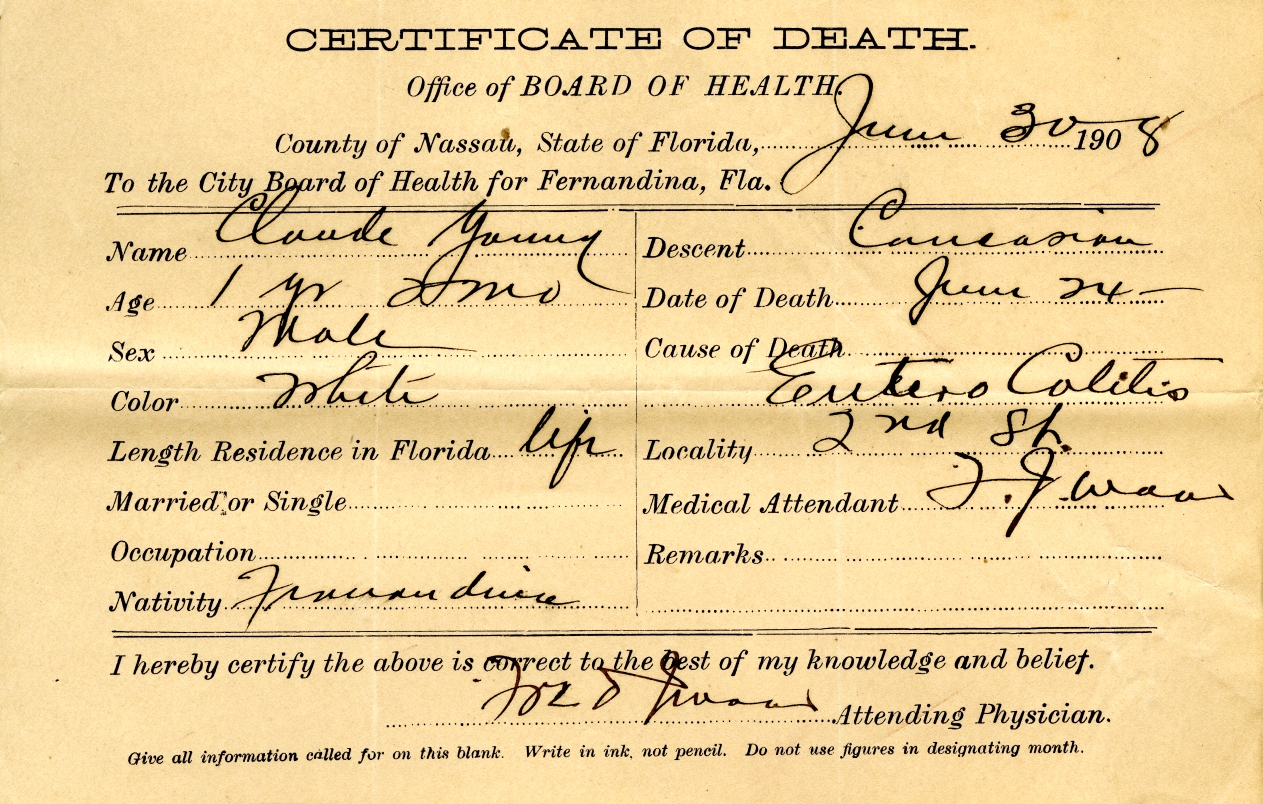 CERTIFICATE OF DEATH.
Office of BOARD OF HEALTH.
County of Nassau, State of Florida, June 30 1908
To the City Board of Health for Fernandina, Fla.
Name Claude Young
Age 1 yr 2 mo
Sex Male
Color White
Length Residence in Florida life
Married or Single
Occupation
Nativity Fernandina
Descent Caucasian
Date of Death June 24
Cause of Death
Entero Colitis
Locality 2nd St.
Medical Attendant
Remarks
I hereby certify the above is correct to the best of my knowledge and belief.
Attending Physician.
Give all information called for on this blank. Write in ink, not pencil. Do not use figures in designating month.